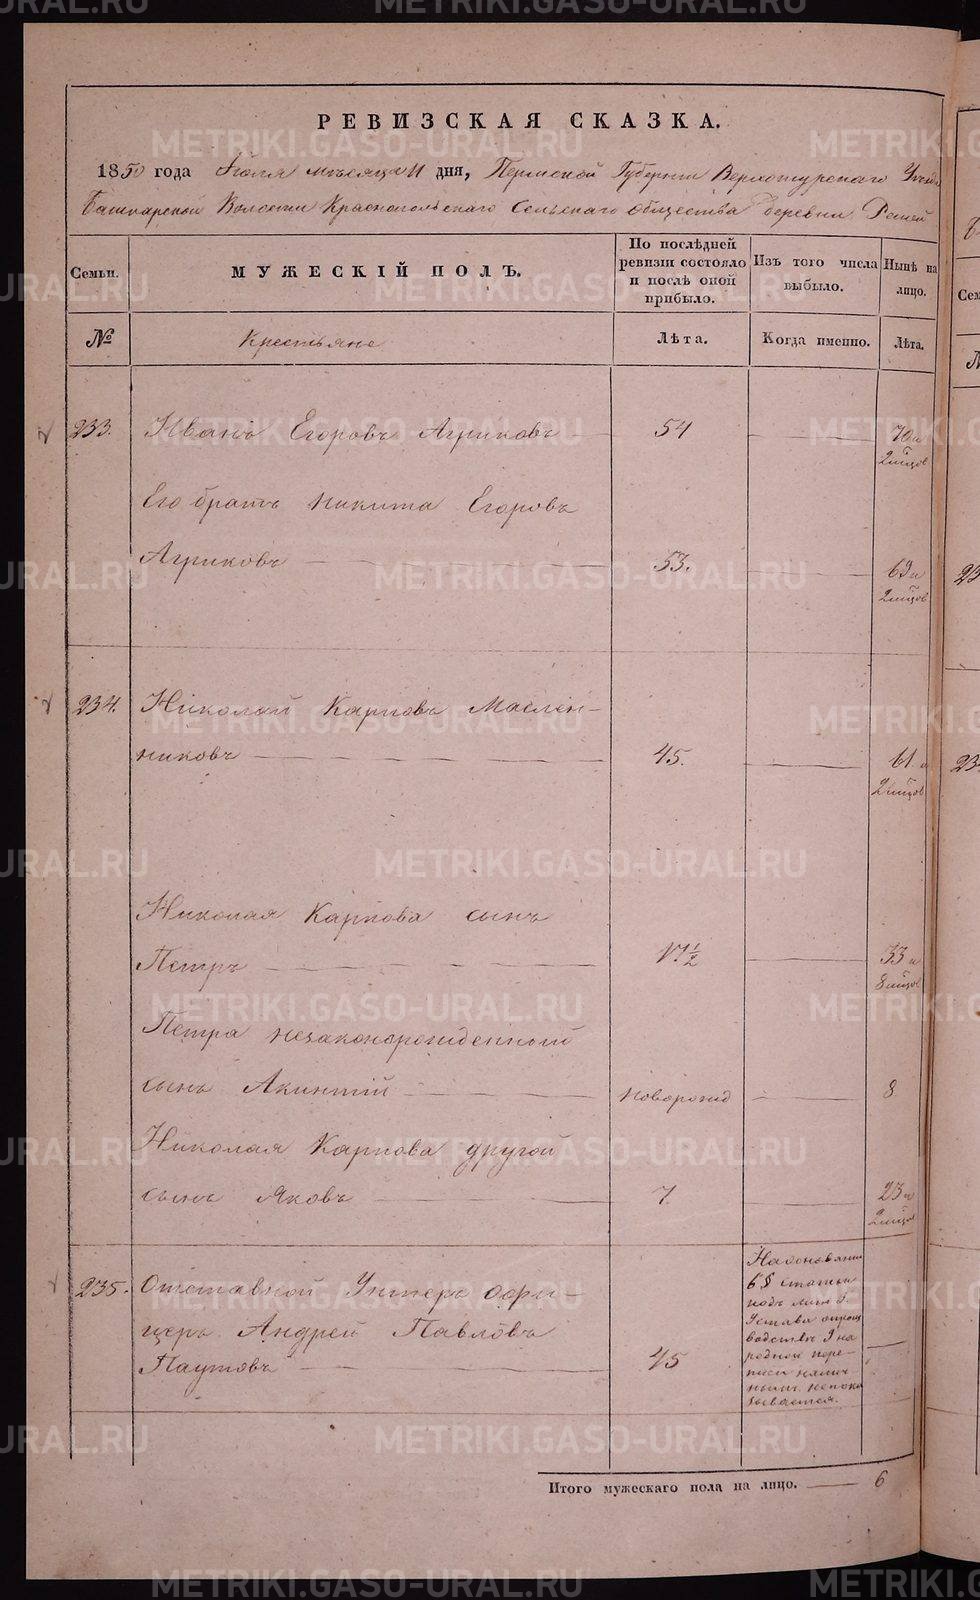 РЕВИЗСКАЯ СКАЗКА.
1850 года Июля мѣсяца 11 дня, Пермской Губернии Верхотурскаго Уѣзда
Башкарской Волости Краснопольскаго Сельскаго общества деревни
Семьи. МУЖЕСКІЙ ПОЛЪ. По послѣдней ревизіи состояло и послѣ оной прибыло. Изъ того числа выбыло. Нынѣ на лицо.
№ Крестьяне Лѣта. Когда именно. Лѣта.
233. Иванъ Егоровъ Агриковъ 54 70 и
2 мѣцов
Его братъ Никита Егоровъ
Агриковъ 53. 69 и
2 мѣцов
234. Николай Карповъ Маслен-
никовъ 45. 61 и
2 мѣцов
Николая Карпова сынъ
Петръ 17½ 33 и
8 мѣцов
Петра незаконорожденный
сынъ Акинтій новорожд 8
Николая Карпова другой
сынъ Яковъ 7. 23 и
2 мѣцов
235. Отставной Унтеръ офи-
церъ Андрей Павловъ
Паутовъ 45
На основании
6 § статьи
Устава опроиз
водствѣ 9 на
родной пере-
писи
непока
зывается.
Итого мужескаго пола на лицо. 6
METRIKI.GASO-URAL.RU